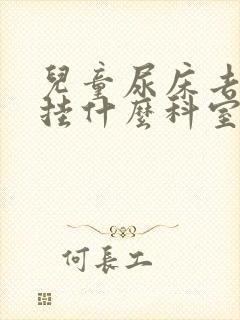 兒童尿床去
挂什麼科室
何長工